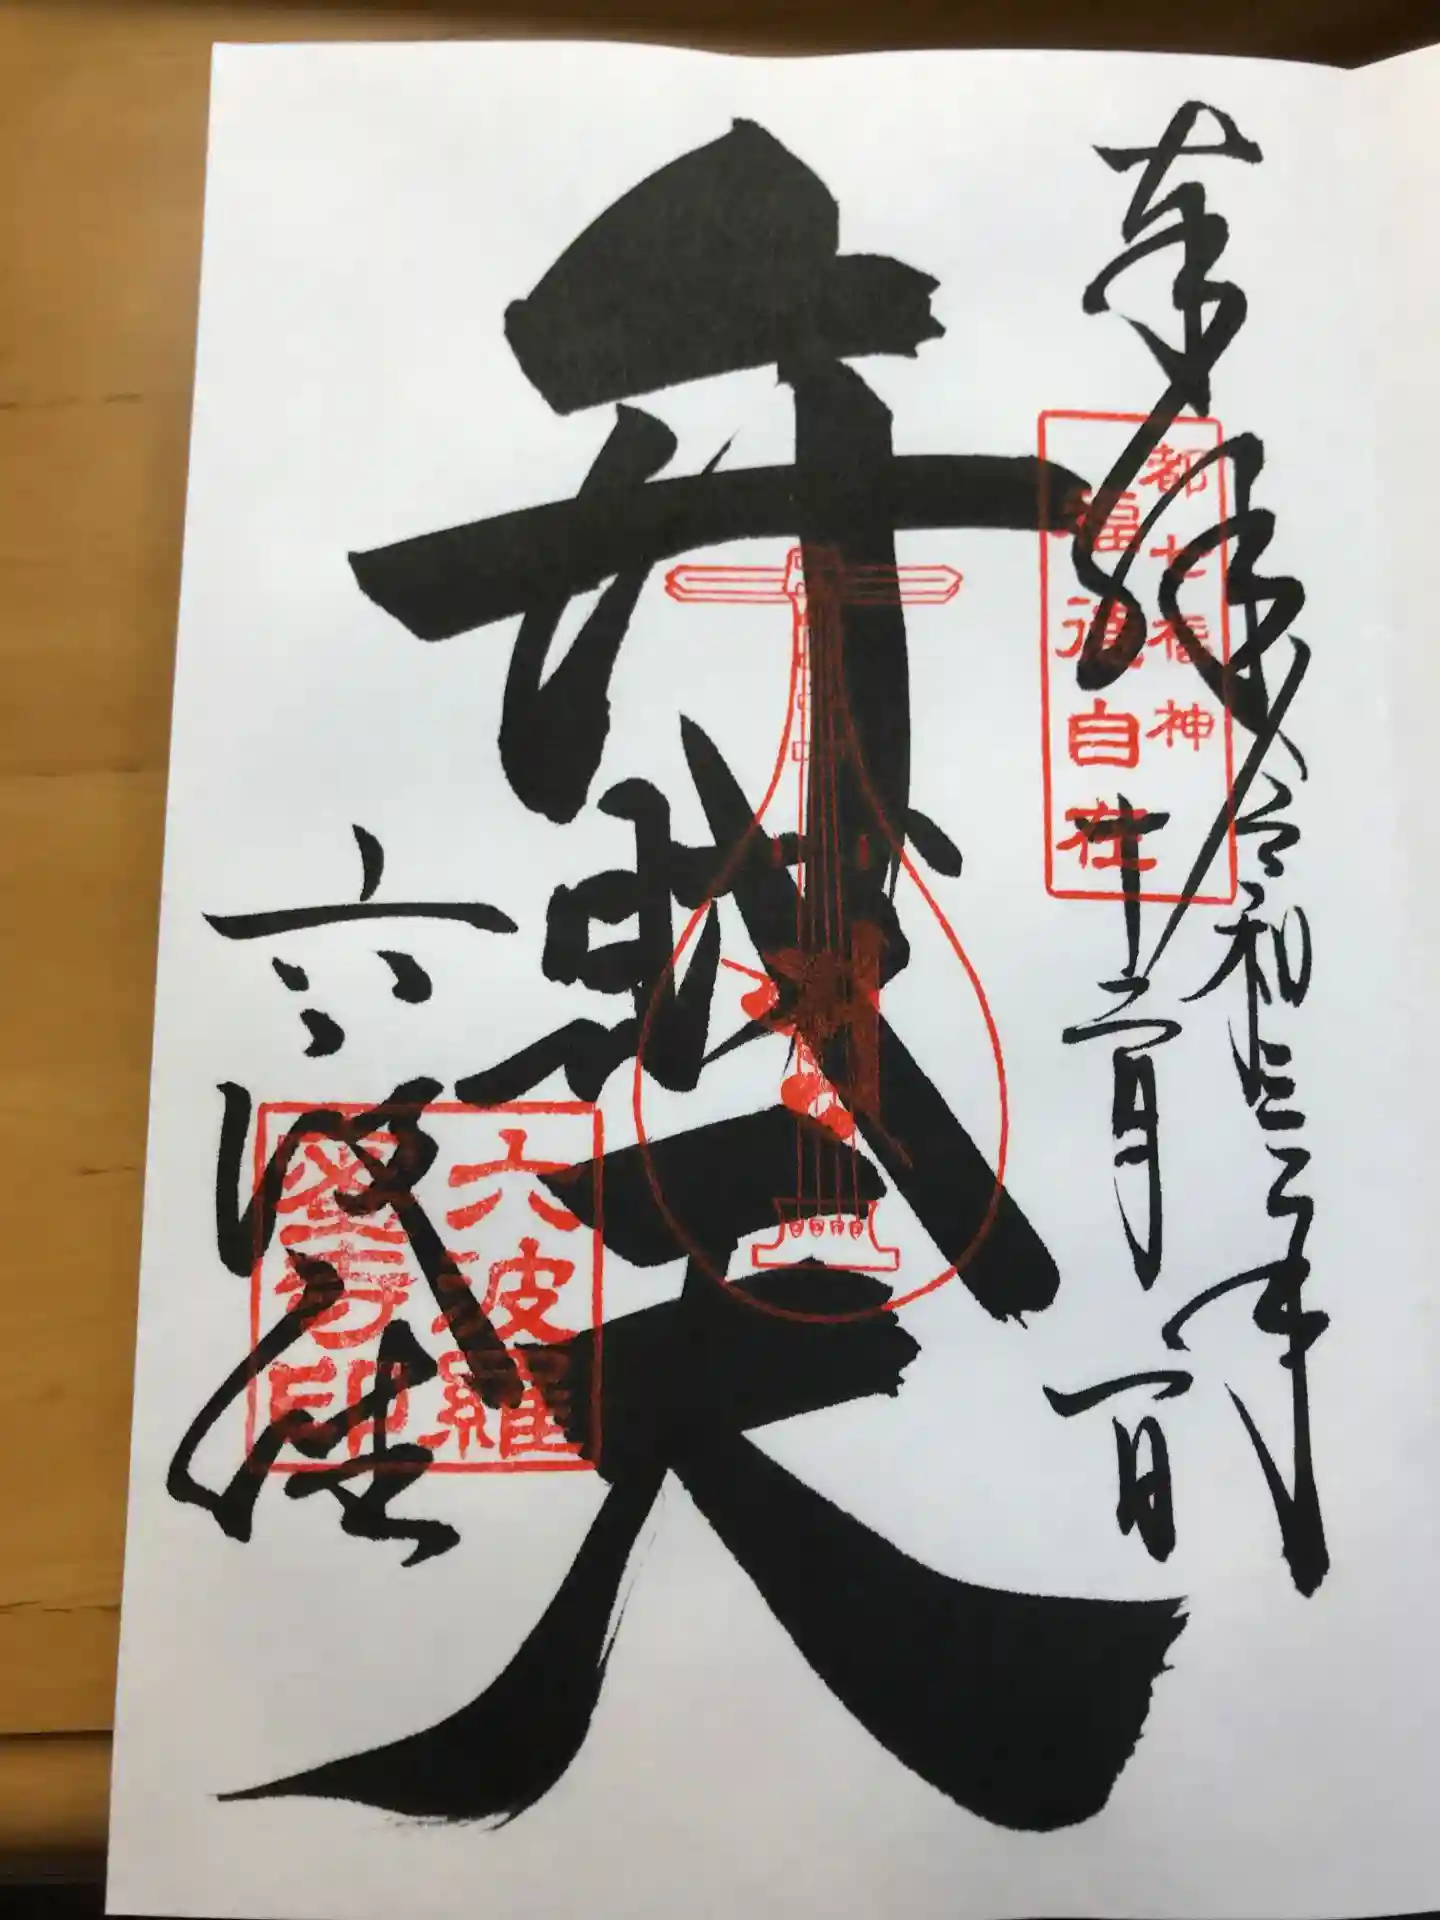 奉拝
令和三年
十二月一日
都七福神
福徳自在
弁財天
六波羅
蜜寺印
六波